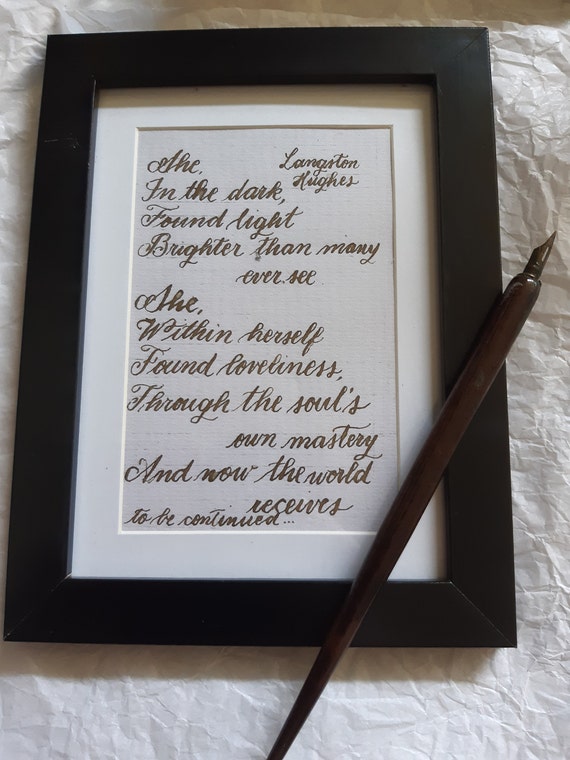 She,
Langston
Hughes
In the dark,
Found light
Brighter than many
ever see
She,
Within herself
Found loveliness,
Through the soul's
own mastery
And now the world
receives
to be continued...